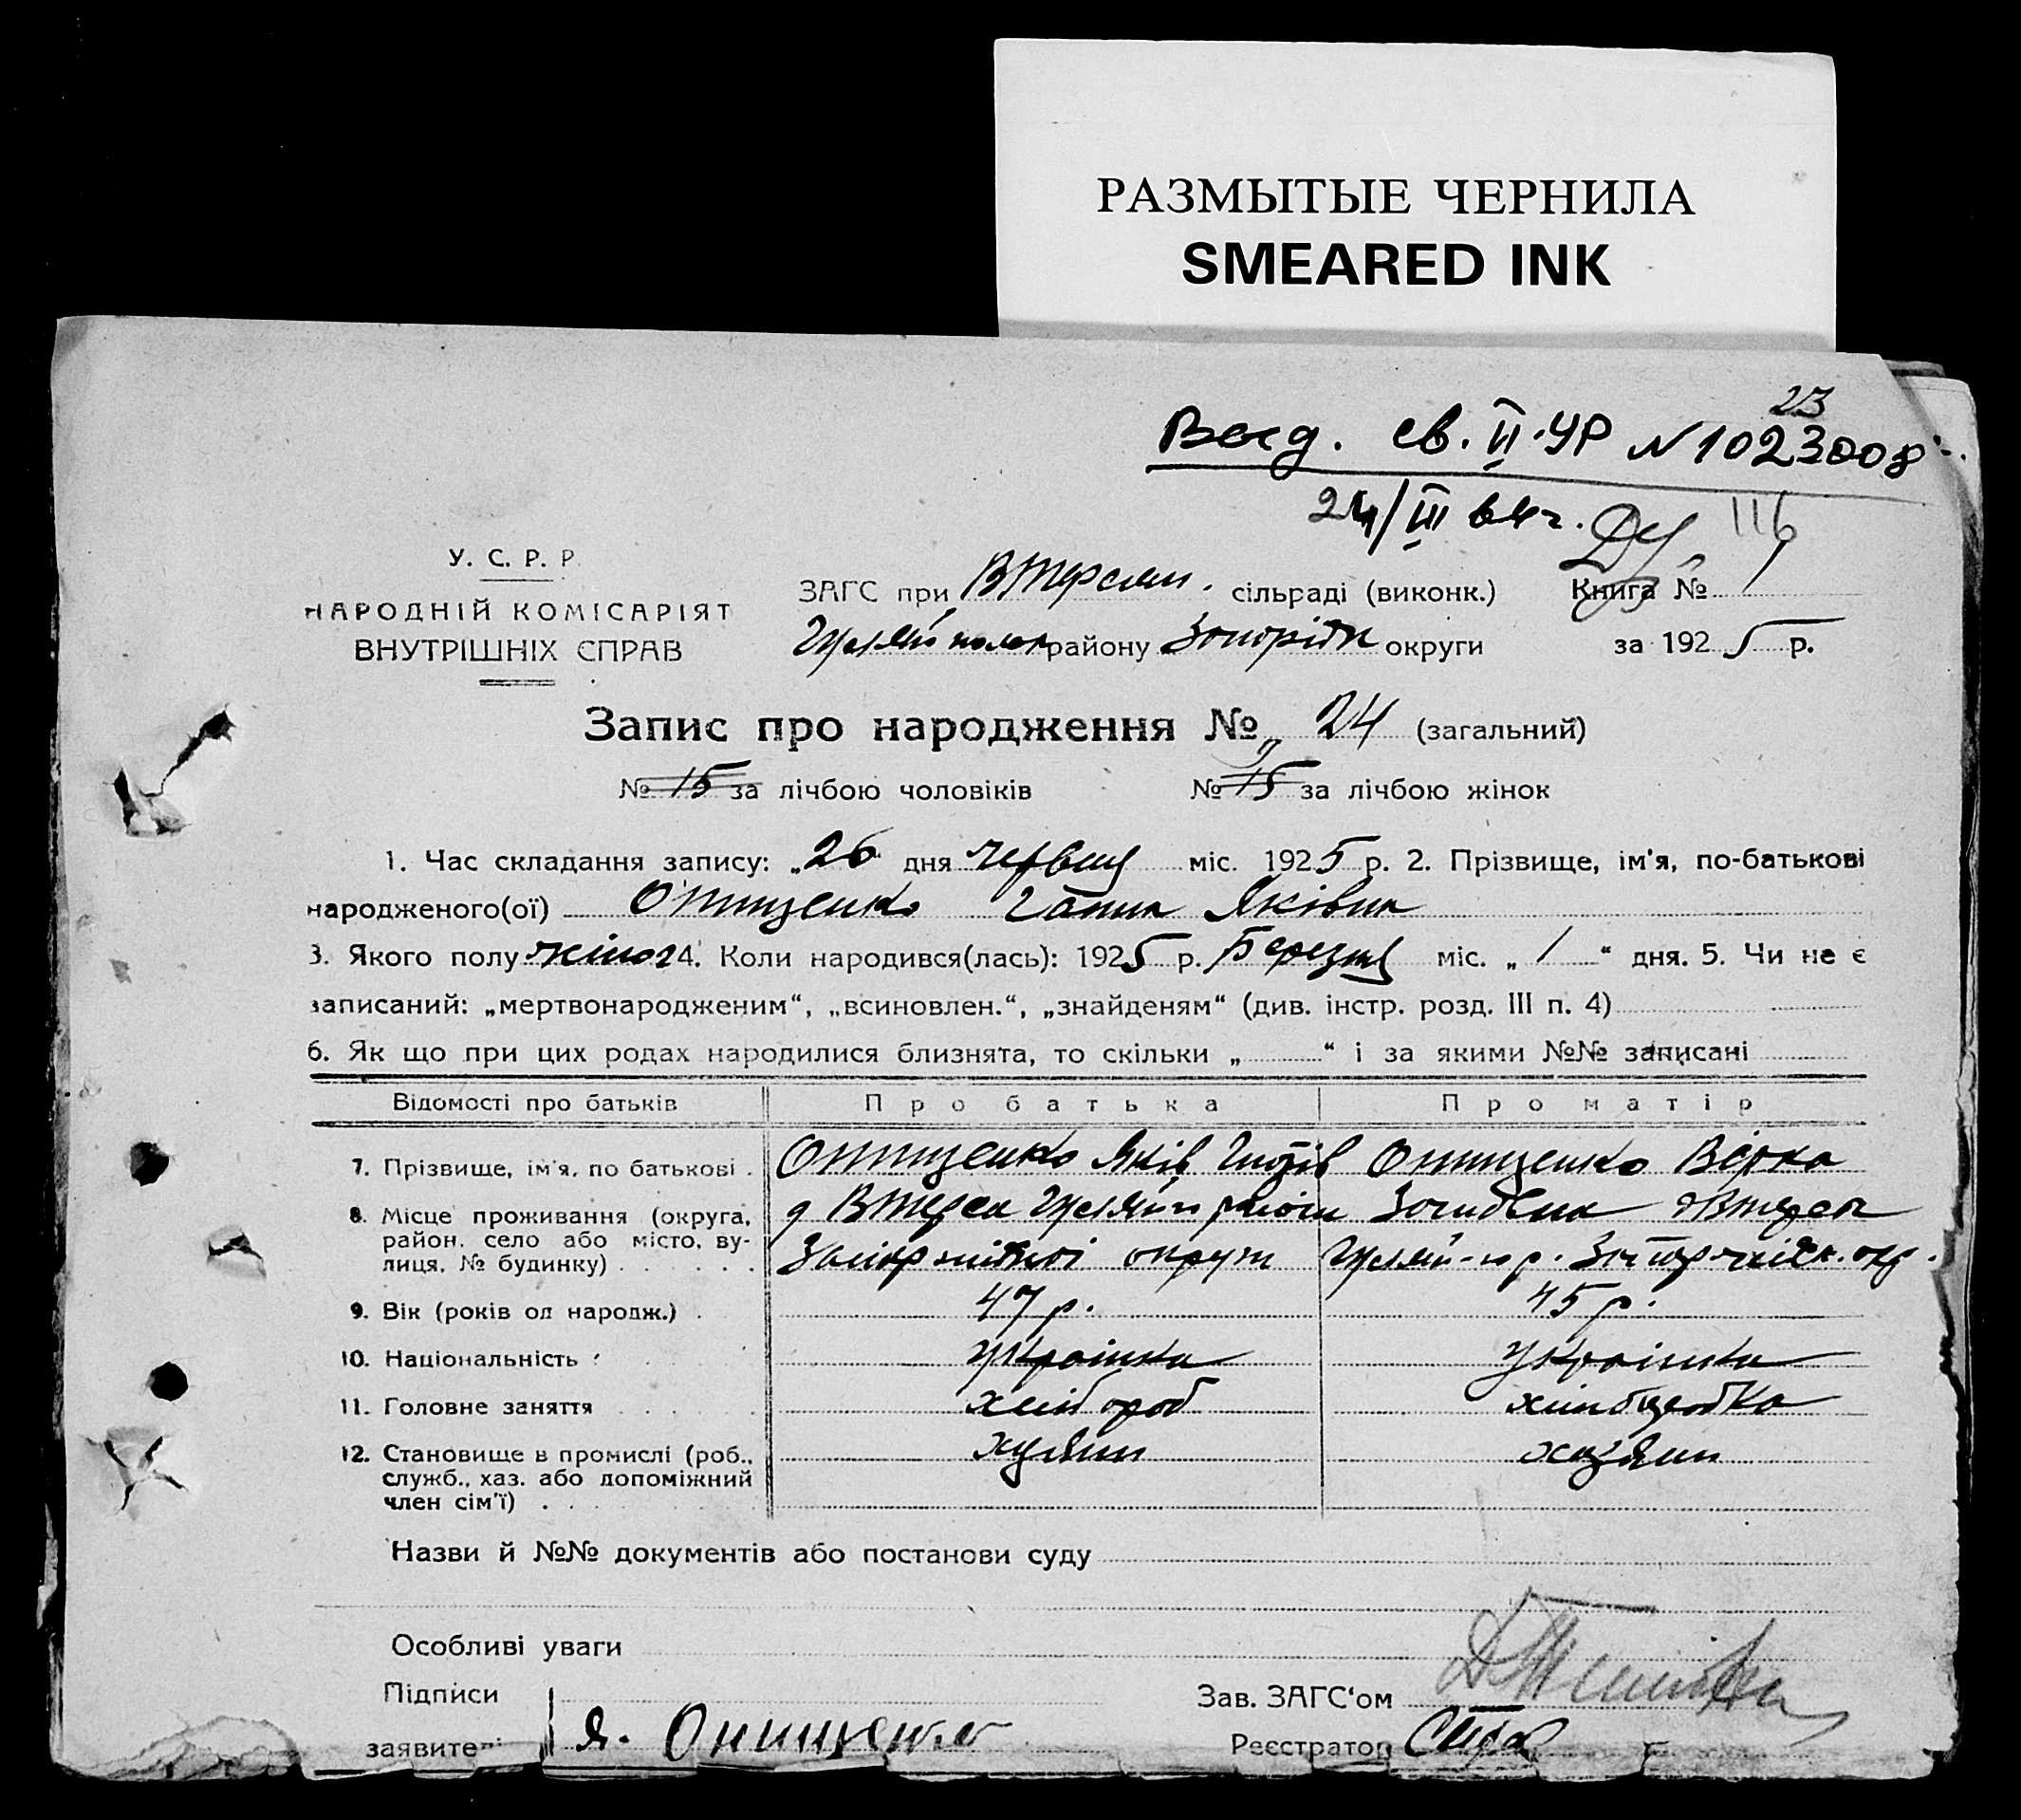 РАЗМЫТЫЕ ЧЕРНИЛА
SMEARED INK
23
Выд. св. II-УР N 1023008
24/III 64 г.
116
У. С. Р. Р.
НАРОДНІЙ КОМІСАРІЯТ
ВНУТРІШНІХ СПРАВ
ЗАГС при В Терсян. сільраді (виконк.) Книга №
Гуляйполек району округи за 1925 р.
Запис про народження № 24 (загальний)
№ 15 за лічбою чоловіків № 15 за лічбою жінок
1. Час складання запису: „26 дня червня міс. 1925 р. 2. Прізвище, ім'я, по-батькові
народженого(ої) Онищенко Ганна Яківна
3. Якого полу жіноч 4. Коли народився(лась): 1925 р. Березня міс. „ 1 “ дня. 5. Чи не є
записаний: „мертвонародженим“, „всиновлен.“, „знайденям“ (див. інстр. розд. III п. 4)
6. Як що при цих родах народилися близнята, то скільки „ “ і за якими №№ записані
Відомості про батьків Про батька Про матір
7. Прізвище, ім'я, по батькові Онищенко Яків Онищенко
8. Місце проживання (округа,
район, село або місто, ву-
лиця, № будинку)
9. Вік (років од народж.) 47 р. 45 р.
10. Національність українка українка
11. Головне заняття хлібороб
12. Становище в промислі (роб.,
служб., хаз. або допоміжний
член сім'ї)
Назви й №№ документів або постанови суду
Особливі уваги
Підписи Зав. ЗАГС'ом
заявителі Я. Онищенко Реєстратор